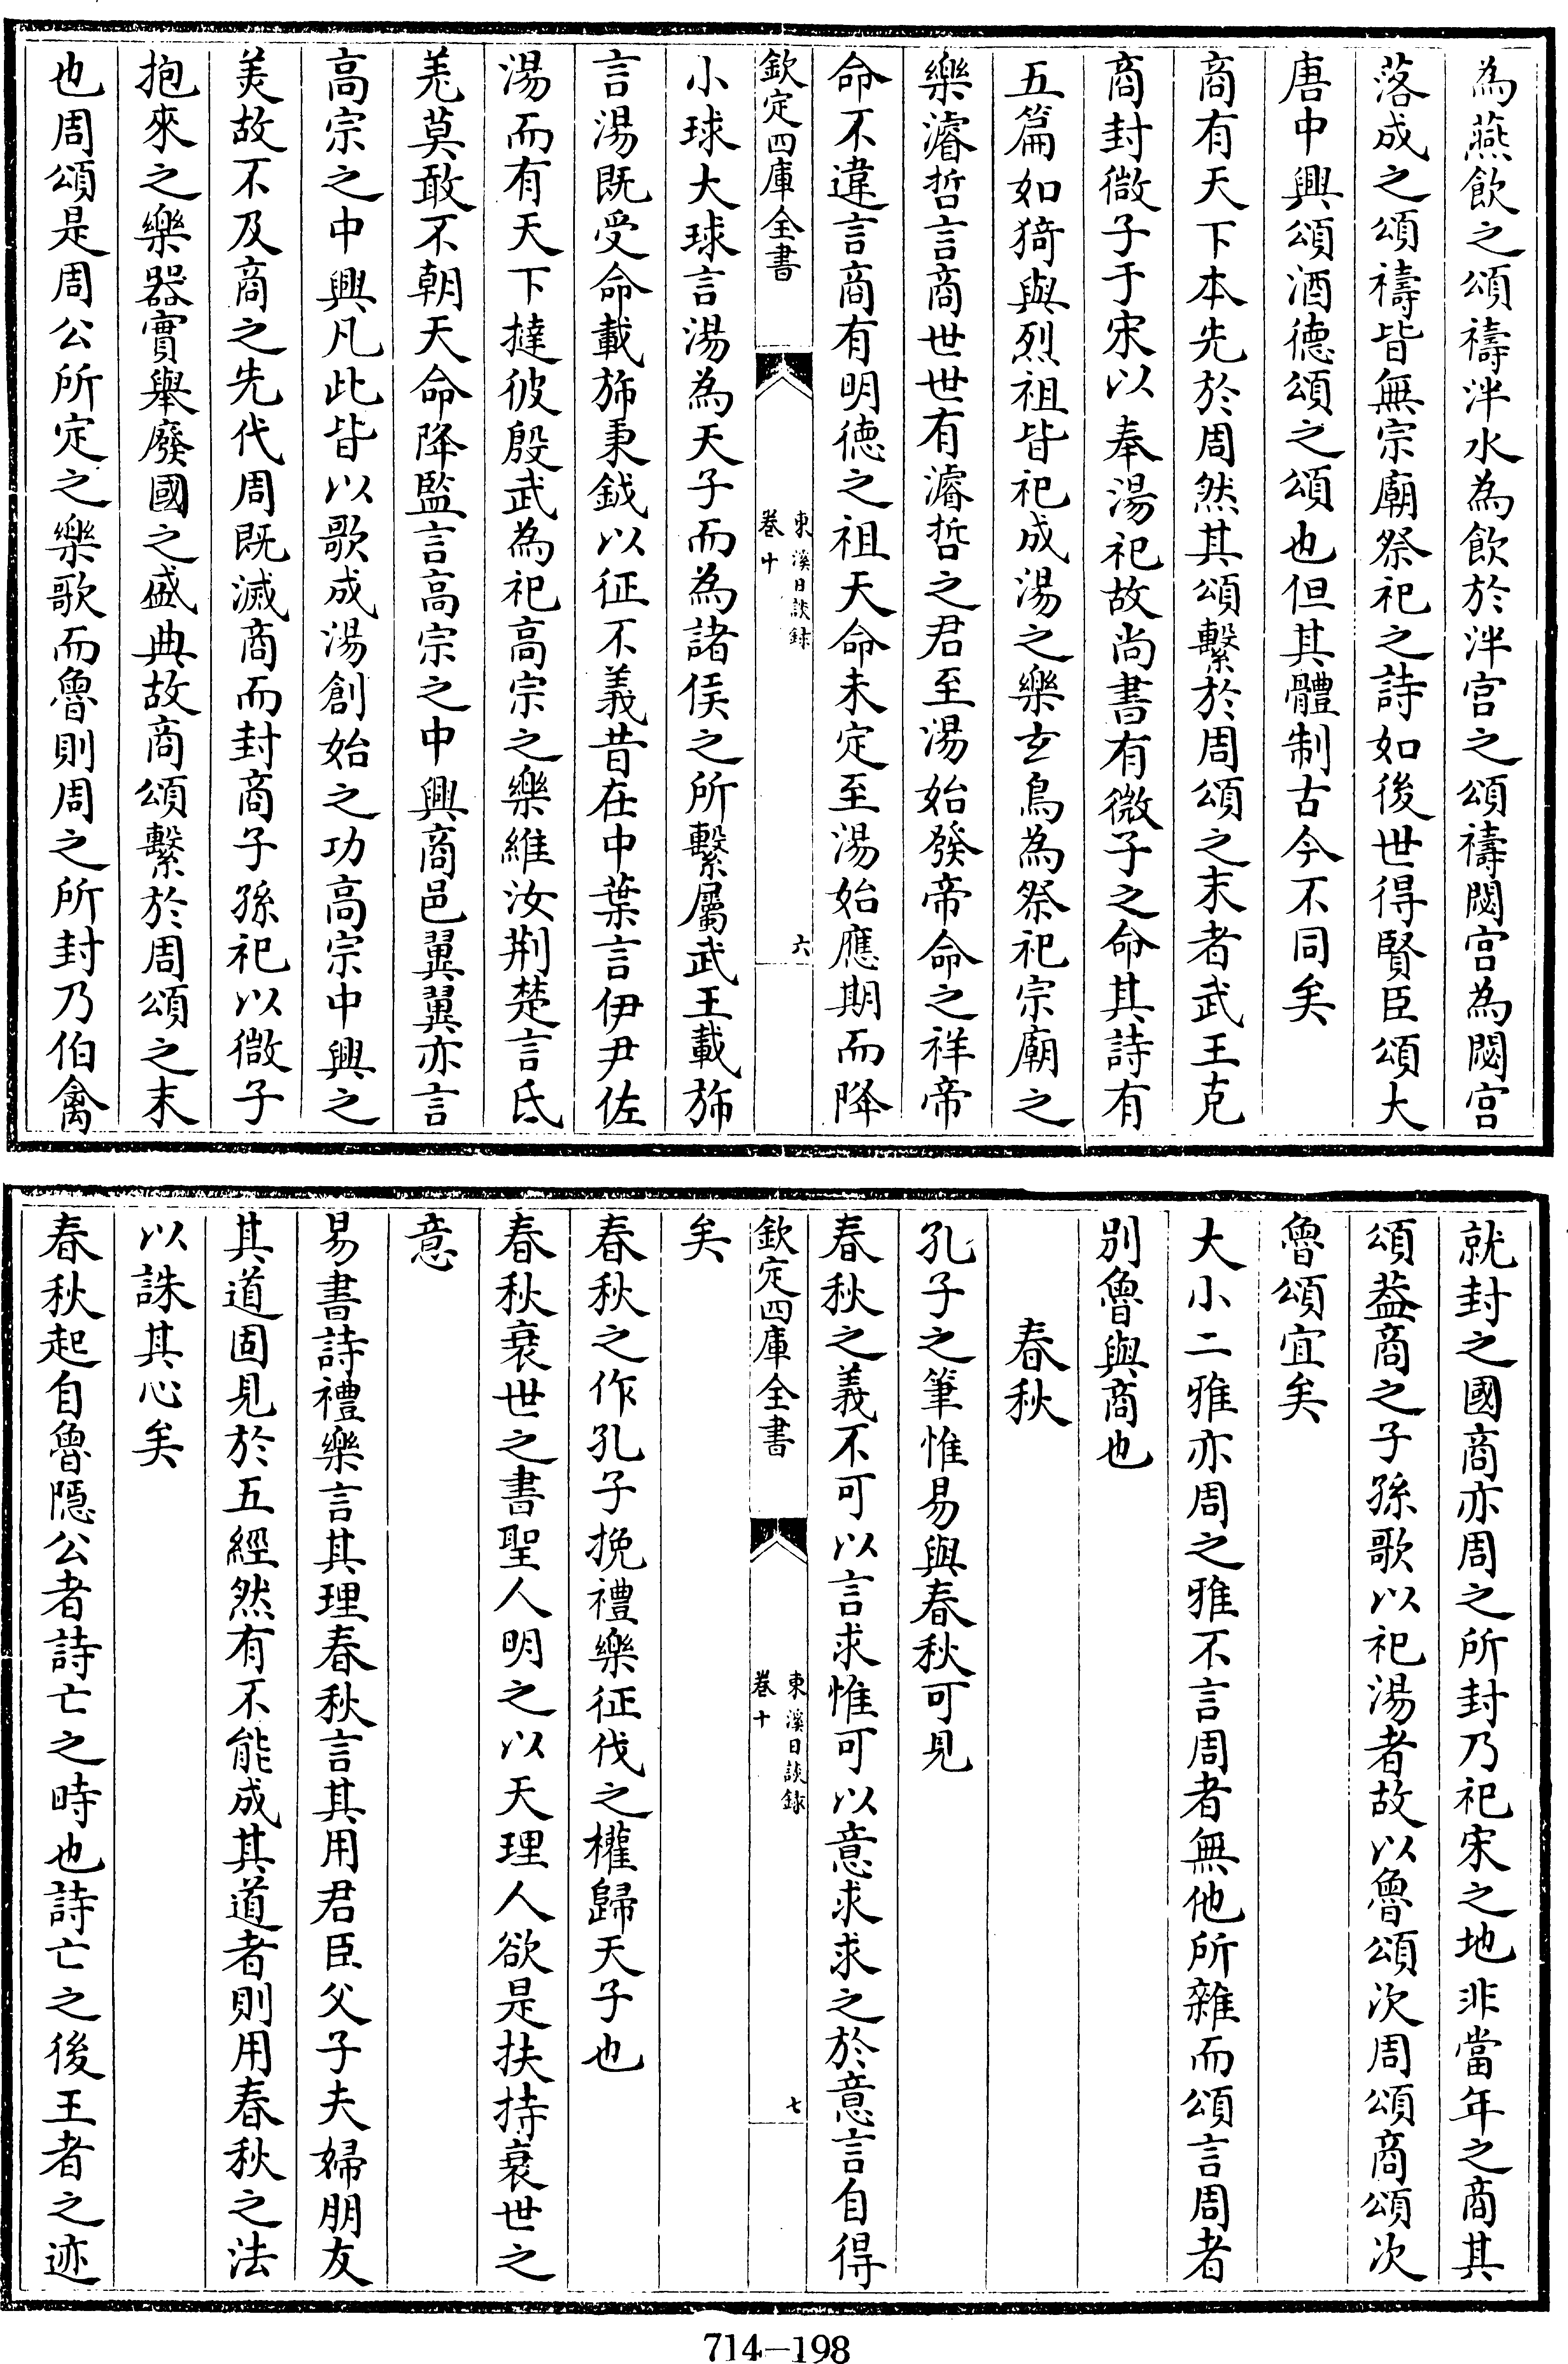 為燕飲之頌禱泮水為飲於泮宫之頌禱閟宫為閟宫
落成之頌禱皆無宗廟祭祀之詩如後世得賢臣頌大
唐中興頌酒德頌之頌也但其體制古今不同矣
商有天下本先於周然其頌繫於周頌之末者武王克
商封微子于宋以奉湯祀故尚書有微子之命其詩有
五篇如猗與烈祖皆祀成湯之樂玄鳥為祭祀宗廟之
樂濬哲言商世世有濬哲之君至湯始發帝命之祥帝
命不違言商有明德之祖天命未定至湯始應期而降
欽定四庫全書
東溪日談録
卷十
六
小球大球言湯為天子而為諸侯之所繫屬武王載斾
言湯既受命載斾秉鉞以征不義昔在中葉言伊尹佐
湯而有天下撻彼殷武為祀高宗之樂維汝荆楚言氐
羌莫敢不朝天命降監言高宗之中興商邑翼翼亦言
高宗之中興凡此皆以歌成湯創始之功高宗中興之
美故不及商之先代周既滅商而封商子孫祀以微子
抱來之樂器實舉廢國之盛典故商頌繫於周頌之末
也周頌是周公所定之樂歌而魯則周之所封乃伯禽
就封之國商亦周之所封乃祀宋之地非當年之商其
頌葢商之子孫歌以祀湯者故以魯頌次周頌商頌次
魯頌宜矣
大小二雅亦周之雅不言周者無他所雜而頌言周者
别魯與商也
春秋
孔子之筆惟易與春秋可見
春秋之義不可以言求惟可以意求求之於意言自得
欽定四庫全書
東溪日談録
卷十
七
矣
春秋之作孔子挽禮樂征伐之權歸天子也
春秋衰世之書聖人明之以天理人欲是扶持衰世之
意
易書詩禮樂言其理春秋言其用君臣父子夫婦朋友
其道固見於五經然有不能成其道者則用春秋之法
以誅其心矣
春秋起自魯隱公者詩亡之時也詩亡之後王者之迹
714-198